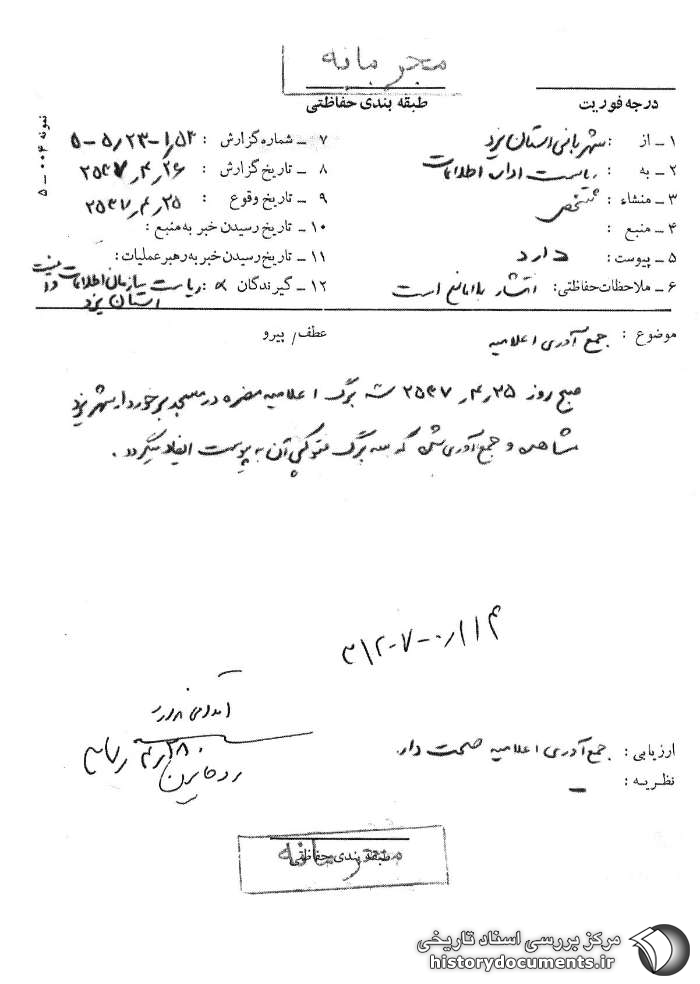 محرمانه
طبقه بندی حفاظتی
درجه فوریت
نمونه ۰۰۴ – ۵
۱ – از : شهربانی استان یزد
۲ – به : ریاست اداره اطلاعات
۳ – منشاء : شخص
۴ – منبع :
۵ – پیوست : دارد
۶ – ملاحظات حفاظتی: انتشار بلامانع است
۷ – شماره گزارش :
۸ – تاریخ گزارش : ۲۵۳۷٫۴٫۲۶
۹ – تاریخ وقوع : ۲۵۳۷٫۴٫۲۵
۱۰ – تاریخ رسیدن خبر به منبع :
۱۱ – تاریخ رسیدن خبر به رهبر عملیات:
۱۲ – گیرندگان : ریاست سازمان اطلاعات و امنیت
استان یزد
موضوع : جمع آوری اعلامیه
عطف/ پیرو
صبح روز ۲۵٫۴٫۲۵۳۷ سه برگ اعلامیه مضره در مسجد برخوردار شهر یزد
مشاهده و جمع آوری شده که سه برگ فتوکپی آن به پیوست ایفاد میگردد.
ارزیابی : جمع آوری اعلامیه صحت دارد.
نظریه : –
محرمانه
طبقه بندی حفاظتی
مرکز بررسی اسناد تاریخی
historydocuments.ir